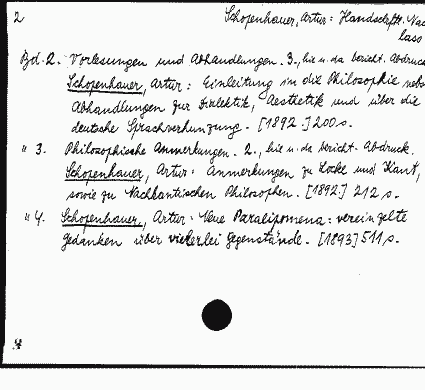 2
Schopenhauer, Artur: Handschriftl. Nach
lass
Bd. 2. Vorlesungen und Abhandlungen. 3., hie u. da bericht. Abdruck
Schopenhauer, Artur: Einleitung in die Philosophie nebs
Abhandlungen zur Dialektik, Aesthetik und über die
deutsche Sprachverhunzung. - [1892.] 200 s.
" 3. Philosophische Anmerkungen. 2., hie u. da bericht. Abdruck.
Schopenhauer, Artur: Anmerkungen zu Locke und Kant,
sowie zu Nachkantischen Philosophen. - [1892.] 212 s.
" 4. Schopenhauer, Artur: Neue Paralipomena: vereinzelte
Gedanken über vielerlei Gegenstände. - [1893] 511 s.